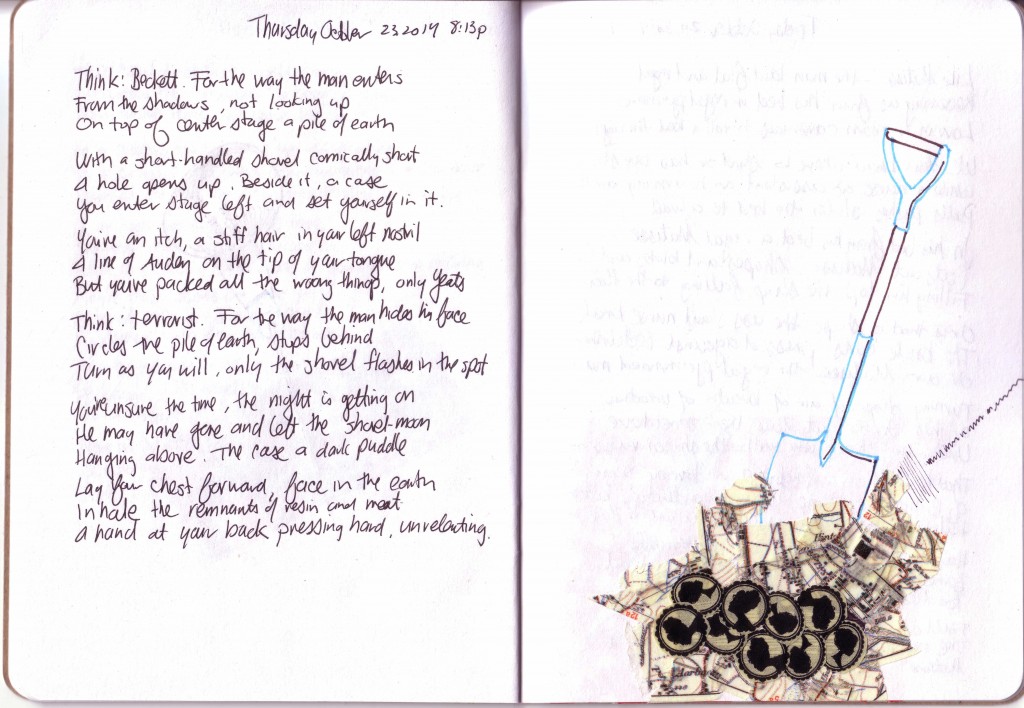 Thursday October 23 2014 8:13p
Think: Beckett. For the way the man enters
From the shadows, not looking up
On top of center stage a pile of earth
With a short-handled shovel comically short
A hole opens up. Beside it, a case
You enter stage left and set yourself in it.
You've an itch, a stiff hair in your left nostril
A line of Auden on the tip of your tongue
But you've packed all the wrong things, only Yeats
Think: terrorist. For the way the man hides his face
Circles the pile of earth, stops behind
Turn as you will, only the shovel flashes in the spot
You're unsure the time, the night is getting on
He may have gone and left the shovel-moon
Hanging above. The case a dark puddle
Lay your chest forward, face in the earth
Inhale the remnants of resin and meat
A hand at your back pressing hard, unrelenting.